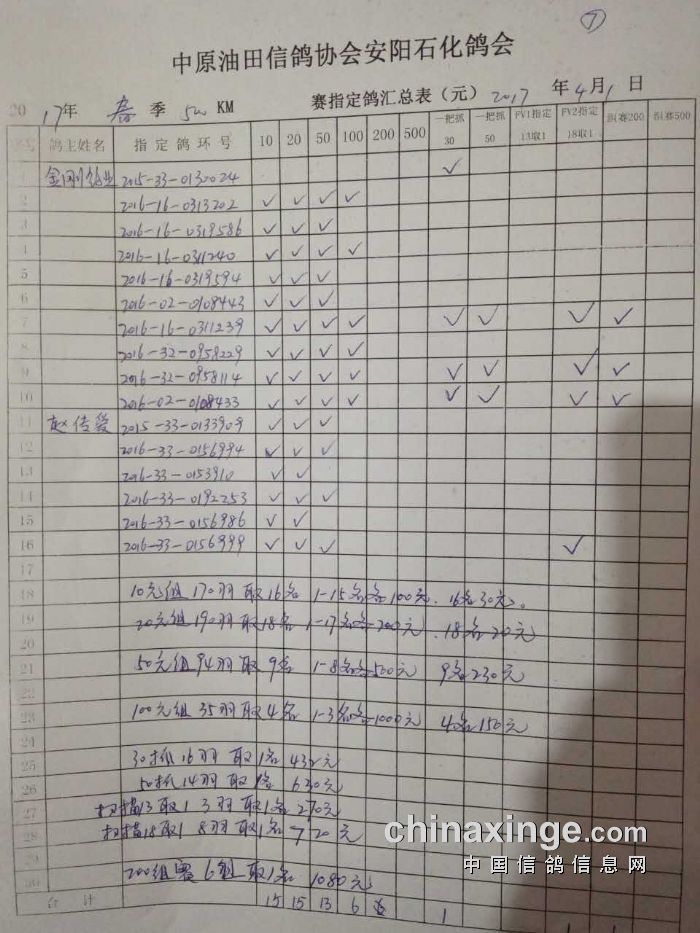 ⑦
中原油田信鸽协会安阳石化鸽会
2017年 春 季 500 KM 赛指定鸽汇总表（元） 2017 年 4 月 1 日
序号 鸽主姓名 指定鸽环号 10 20 50 100 200 500 一把抓30 一把抓50 FV1指定13取1 FV2指定18取1 组赛200 组赛500
1 金刚鸽业 2015-33-0130024 ✓
2 2016-16-0313202 ✓ ✓ ✓ ✓
3 2016-16-0319586 ✓ ✓ ✓
4 2016-16-0311240 ✓ ✓ ✓ ✓
5 2016-16-0319594 ✓ ✓ ✓
6 2016-02-0108443 ✓ ✓ ✓
7 2016-16-0311239 ✓ ✓ ✓ ✓ ✓ ✓ ✓ ✓
8 2016-32-0958229 ✓ ✓ ✓ ✓
9 2016-32-0958114 ✓ ✓ ✓ ✓ ✓ ✓ ✓ ✓
10 2016-02-0108433 ✓ ✓ ✓ ✓ ✓ ✓ ✓ ✓
11 赵传爱 2015-33-0133909 ✓ ✓ ✓
12 2016-33-0156994 ✓ ✓ ✓
13 2016-33-0153910 ✓ ✓
14 2016-33-0192253 ✓ ✓ ✓
15 2016-33-0156986 ✓ ✓
16 2016-33-0156999 ✓ ✓ ✓ ✓
17
18 10元组 170羽 取16名 1-15名各100元. 16名30元。
19 20元组 190羽 取18名 1-17名各200元. 18名20元
20
21 50元组 94羽 取9名 1-8名各500元 9名230元
22
23 100元组 35羽 取4名 1-3名各1000元 4名150元
24
25 30抓 16羽 取1名 432元
26 50抓 14羽 取1名 630元
27 扫描13取1 3羽 取1名 270元
28 扫描18取1 8羽 取1名 720元
29
30 200组赛 6组 取1名 1080元
合计 15 15 13 6 1
chinaxinge.com
中国信鸽信息网